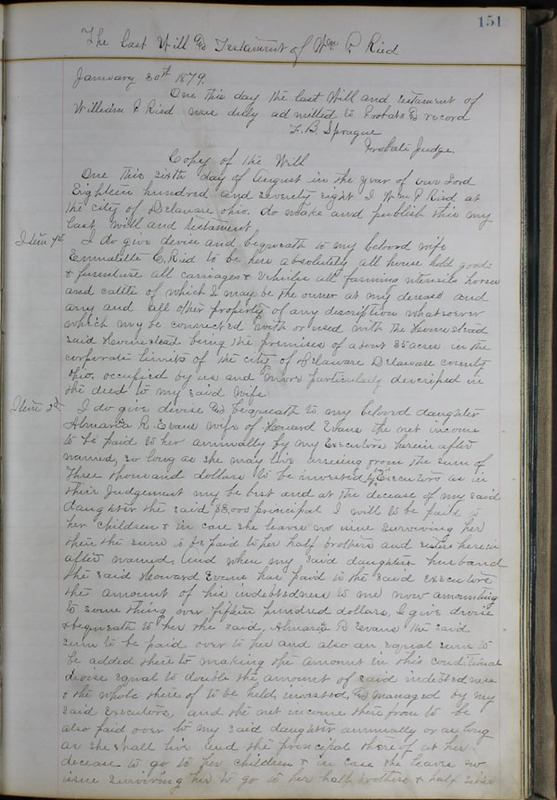 151
The Last Will & Testament of Wm P. Ried
January 30th 1879.
One this day the last Will and testament of
William P Ried was duly admitted to Probate & record
F. B. Sprague
Probate Judge.
Copy of the Will
One this sixth day of August in the year of our Lord
Eighteen hundred and seventy eight I Wm P Ried at
the city of Delaware Ohio. do make and publish this my
Last will and testament
Item 1st I do give devise and bequeath to my beloved wife
Emmalette C. Ried to be hers absolutely all house hold goods
& furniture all carriages & vehicles all farming utensils horses
and cattle of which I may be the owner at my decease and
any and all other property of any description whatsoever
which may be connected with or used with the Homestead
said Homestead being the premises of about 35 acres in the
corporate limits of the city of Delaware Delaware county
Ohio. occupied by us and more particularly described in
the deed to my said wife
Item 2d I do give devise & bequeath to my beloved daughter
Almaretta R. Evans wife of Howard Evans the net income
to be paid to her annually by my Executors herein after
named, so long as she may live arising from the sum of
Three thousand dollars to be invested by Executors as in
their Judgement may be best and at the decease of my said
daughter the said $3,000 principal I will to be paid to
her children & in case she leaves no issue surviving her
then the sum is to be paid to her half brothers and sister herein
after named, And when my said daughters husband
the said Howard Evans has paid to the said executors
the amount of his indebtedness to me now amounting
to some thing over fifteen hundred dollars, I give devise
& bequeath to her the said, Almaretta R Evans the said
sum to be paid over to her and also an equal sum to
be added there to making the amount in this conditional
devise equal to double the amount of said indebtedness
& the whole there of to be held, invested, & managed by my
said Executors, and the net income there from to be
also paid over to my said daughter annually or as long
as she shall live and the principal there of at her
decease to go to her children & in case she leave no
issue surviving her to go to her half brothers & half sister